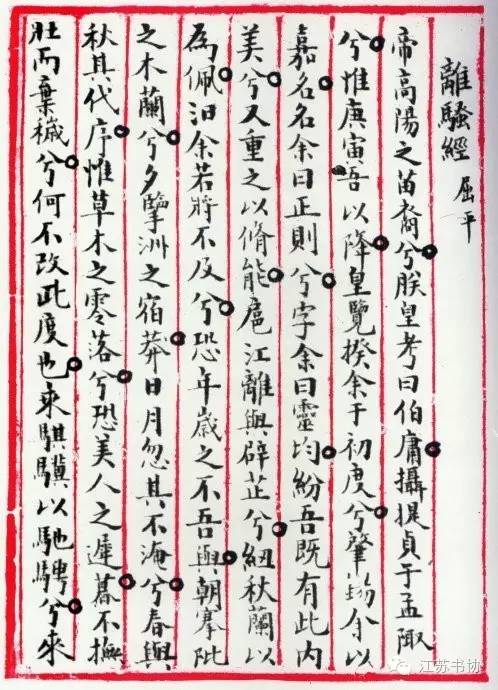 離騷經 屈平
帝高陽之苗裔兮朕皇考曰伯庸攝提貞于孟陬
兮惟庚寅吾以降皇覽揆余于初度兮肇錫余以
嘉名名余曰正則兮字余曰靈均紛吾既有此內
美兮又重之以脩能扈江離與辟芷兮紉秋蘭以
為佩汨余若將不及兮恐年歲之不吾與朝搴阰
之木蘭兮夕擥洲之宿莽日月忽其不淹兮春與
秋其代序惟草木之零落兮恐美人之遲暮不撫
壯而棄穢兮何不改此度也乘騏驥以馳騁兮來
江苏书协